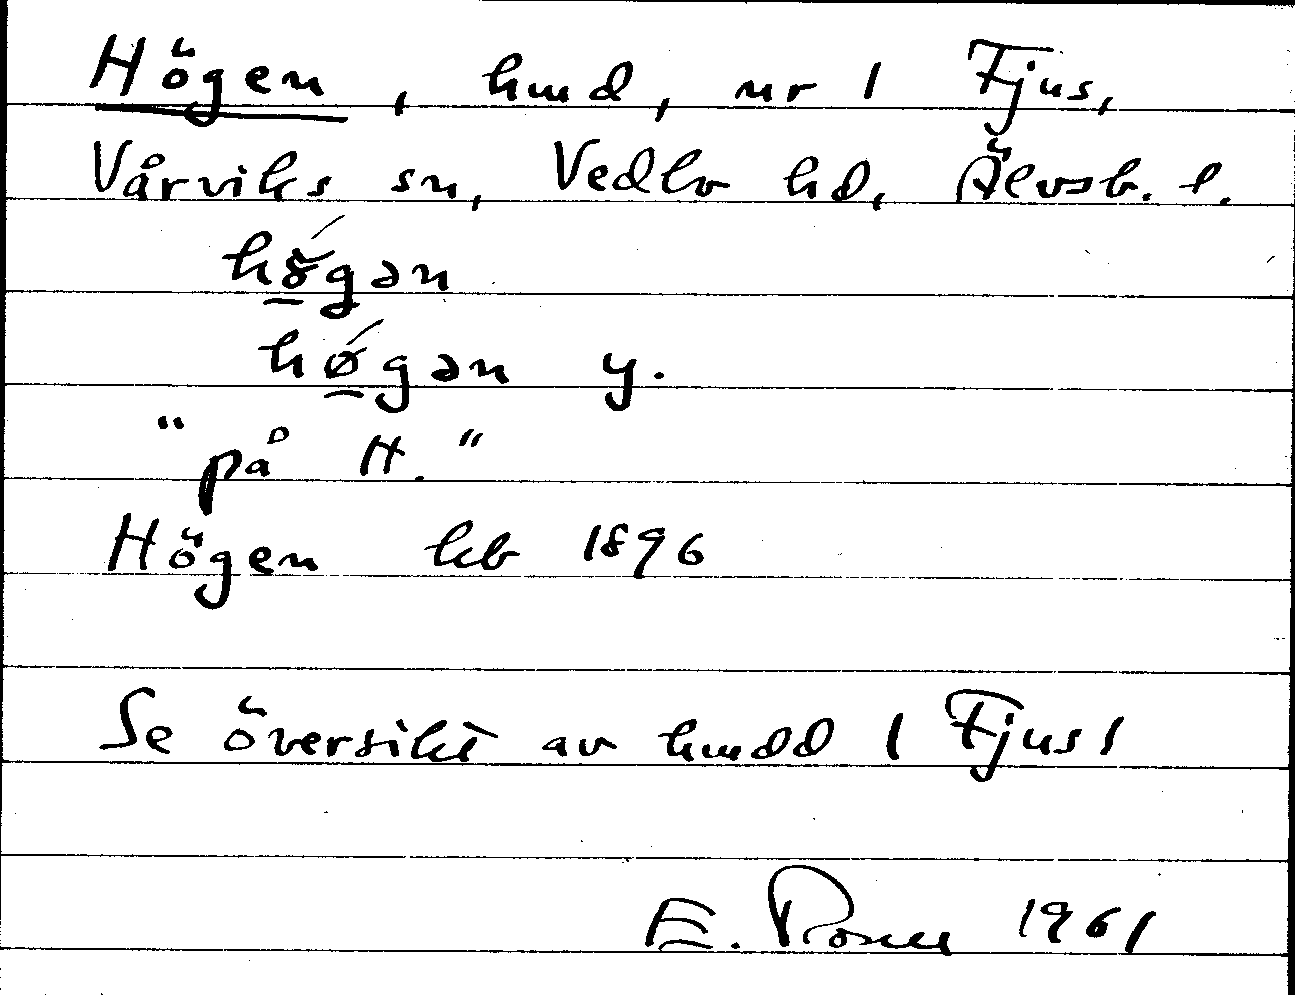 Högen, hmd, nr 1 Fjus,
Vårviks sn, Vedbo hd, Älvsb. l.
hǿgən
hǿgən y.
"på H."
Högen kb 1896
Se översikt av hmdd 1 Fjus!
E. 1961